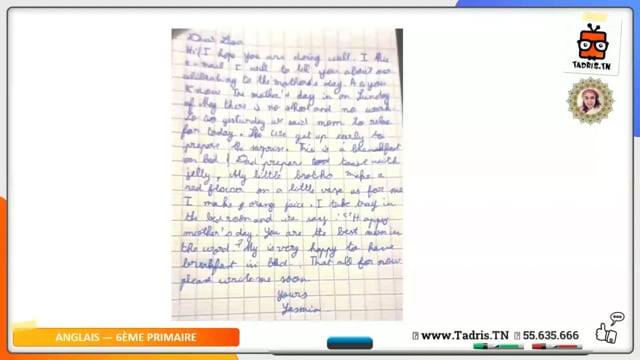 Dear Lisa
Hi! I hope you are doing well. I this
e-mail I will to tell you about our
celebrating to the mother's day. As you
know the mother's day in on Sunday
of May there is no shool and no work
to go yesturday we said mom to relax
for today. The we get up early to
prepare the surprise. This is a breakfast
on bed! Dad prepare toast with
jelly, My little brother make a
red flower on a little vase as for me
I make orange juice. I take tray in
the bedroom and we say: "Happy
mother's day. You are the best mom in
the word" My is very happy to have
breakfast in bed. That all for now
please write me soon
yours
Yasmin
TADRIS.TN
ANGLAIS — 6ÈME PRIMAIRE
www.Tadris.TN
55.635.666